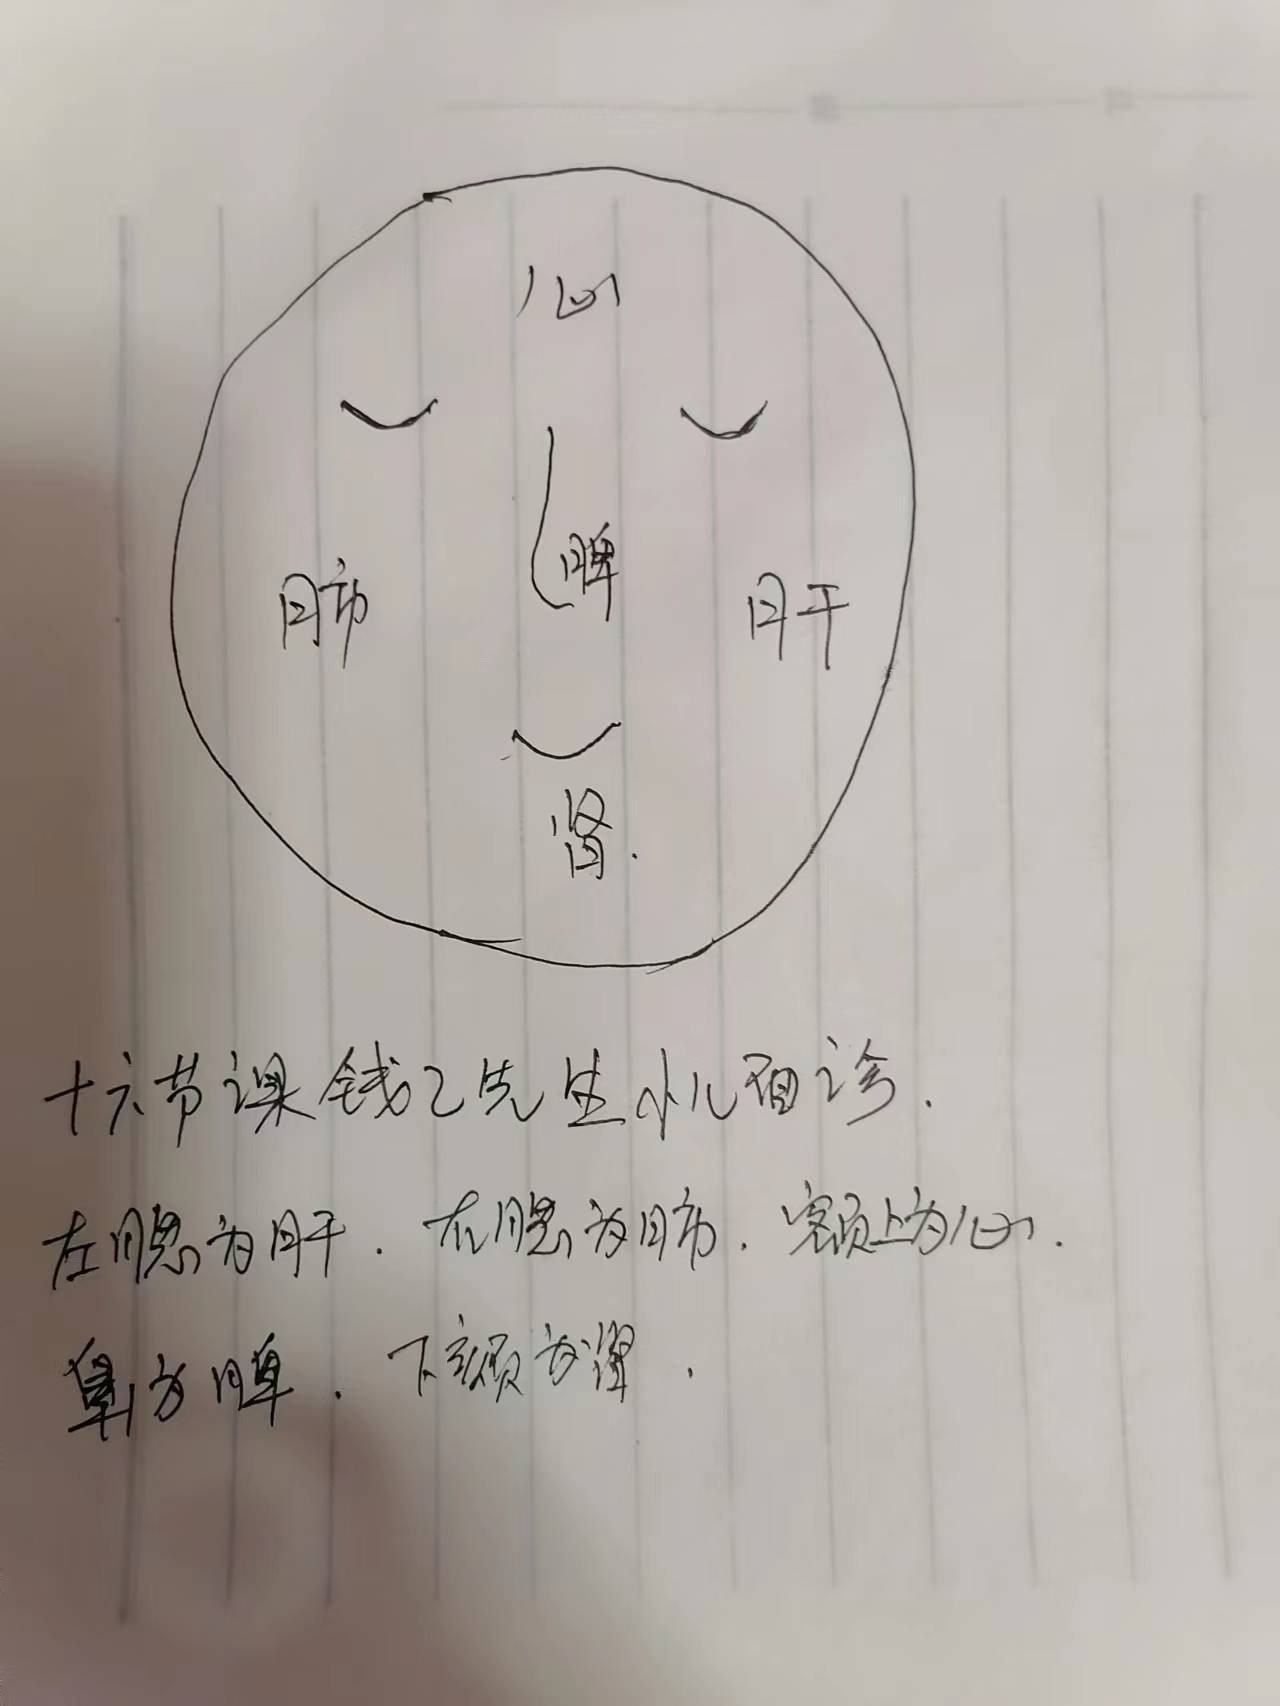 心
脾
肺
肝
肾.
十六节课钱乙先生小儿面诊.
左腮为肝. 右腮为肺. 额上为心.
鼻为脾. 下颏为肾.